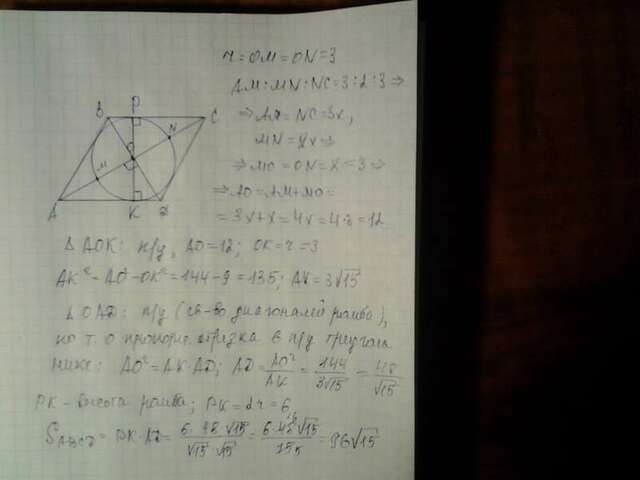 r = OM = ON = 3
AM : MN : NC = 3 : 2 : 3 ⇒
⇒ AM = NC = 3x,
MN = 2x ⇒
⇒ MO = ON = x = 3 ⇒
⇒ AO = AM + MO =
= 3x + x = 4x = 4·3 = 12
B P C
N
O
M
A K D
Δ AOK: п/у, AO = 12; OK = r = 3
AK² = AO² - OK² = 144 - 9 = 135; AK = 3√15
Δ OAD: п/у (св-во диагоналей ромба),
по т. о пропорц. отрезка в п/у треуголь
нике: AO² = AK·AD; AD = AO²/AK = 144/3√15 = 48/√15
PK - высота ромба; PK = 2r = 6
S ABCD = PK·AD = 6·48·√15/√15·√15 = 6·48√15/15 =